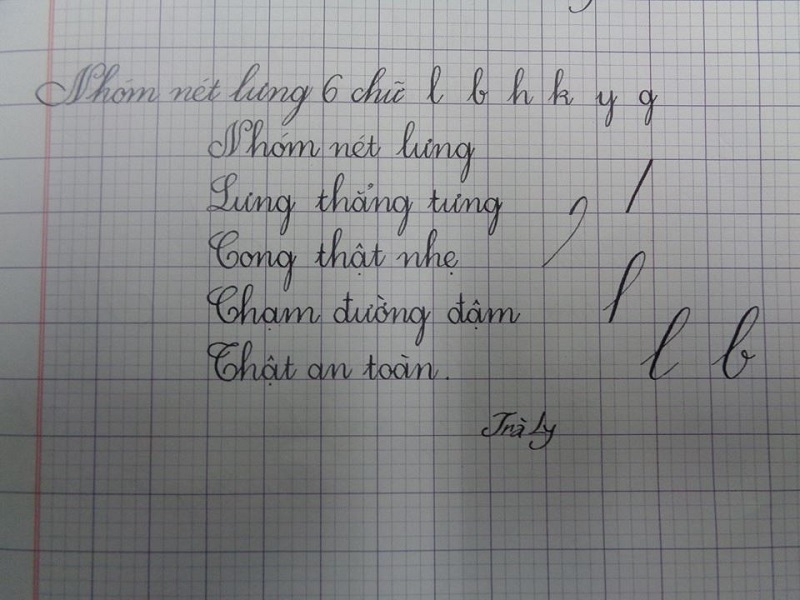 Nhóm nét lưng 6 chữ l b h k y g
Nhóm nét lưng
Lưng thẳng tưng
Cong thật nhẹ
Chạm đường đậm
Thật an toàn.
l b
Trà Ly